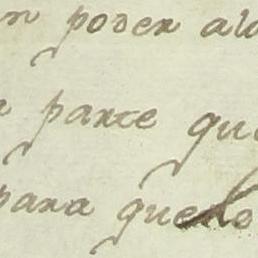 n poder alg
parte que
para quedo